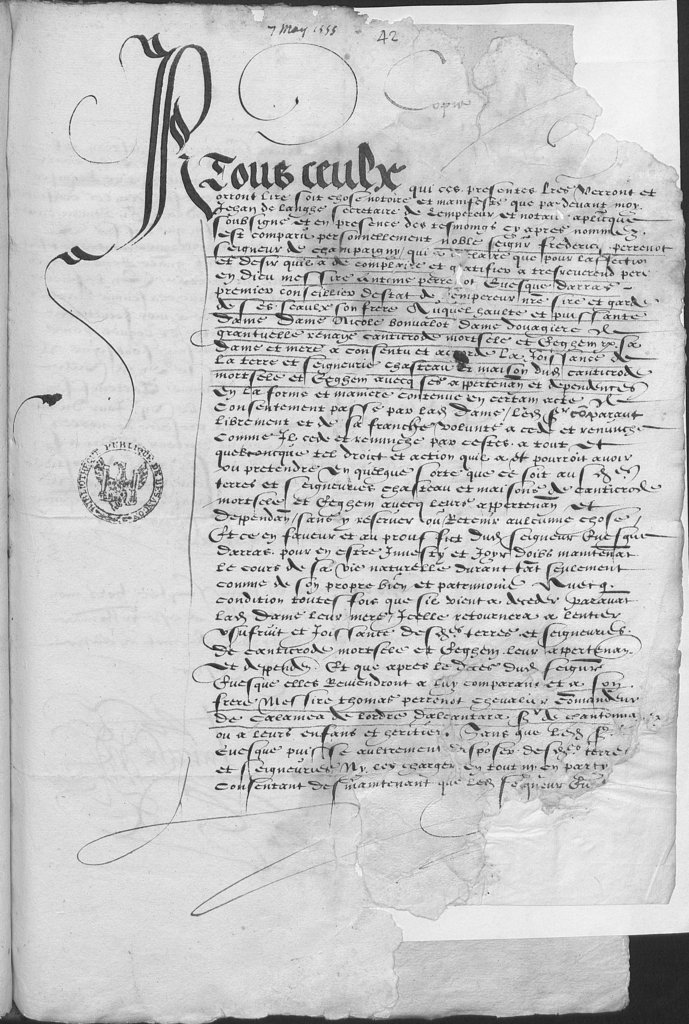 7 May 1555
42
Copie
A Tous ceulx qui ces presentes lres Verront et
orront lire soit chose notoire et manifeste que pardevant moy
Jehan de Langhe secretaire de Lempereur et notaire aplicque
soubsigne et en presence des tesmoings cy apres nommez
est comparu personnellement noble seignr frederic perrenot
seigneur de champaigny qui a declaire que pour laffection
et desir quil a de complaire et gratifier a tresreverend pere
en dieu messire Antoine perrenot Evesque darras
premier conseillier destat de Lempereur nre sire et garde
de ses seaulx son frere Auquel haulte et puissante
dame dame Nicole bonvalot dame douagiere de
grantvelle renaye canticrode mortsele et Eeghem sa
dame et mere a consentu et accorde La Joissance de
La terre et seigneurie chasteau et maison dud canticrode
mortsele et Eeghem avecq ses appertenan et dependences
En la forme et maniere contenue en certain acte de
Consentement passe par lad dame Led sr comparant
librement et de sa franche volunte a cede et renunche
Comme Il cede et renunche par cestes a tout et
quelconcque tel droit et action quil a et pourroit avoir
ou pretendre En quelque sorte que ce soit au sd
terres et seigneuries chasteau et maisons de canticrode
mortsele et Eeghem avecq leurs appertenan et
dependan sans y reserver ou Retenir aulcune chose
Et ce en faveur et au prouffict dud seigneur Evesque
darras pour en estre Investy et Joyr doibs maintenat
le cours de sa vie naturelle durant tat seulement
comme de son propre bien et patrimoine Avecq
condition toutesfois que sil vient a deceder paravat
lad dame leur mere Icelle retournera a lentier
Usufruit et Joissance desd terres et seigneuries
de canticrode mortsele et Eeghem leur appertenan
Et dependen Et que apres le deces dud seignr
Evesque elles Reviendront a luy comparant et a son
frere Messire thomas perrenot Chevalier Comandeur
de Calamea de lordre dalcantara sr de chantonna
ou a leurs enfans et heritier Sans que led sr
Evesque puisse aultrement disposer desd terre
et seigneuries Ny les charger en tout ny en party
Consentant des maintenant que led seigneur Ev
BIBLIOTHEQUE PUBLIQUE DE BESANCON